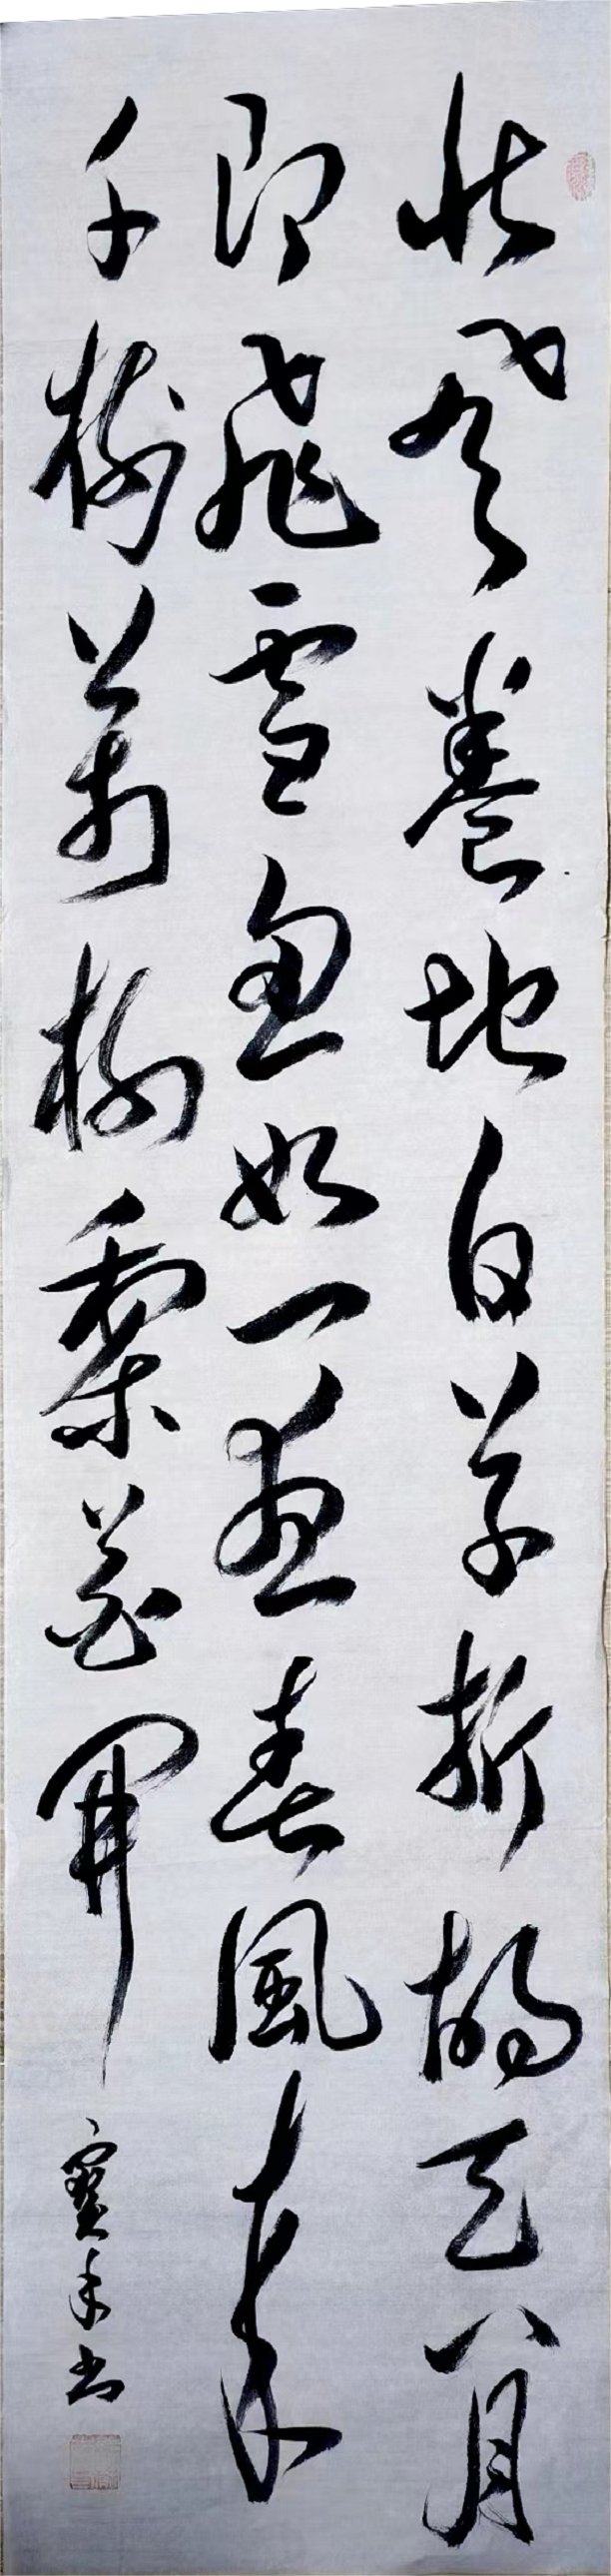 北風卷地白草折胡天八月
即飛雪忽如一夜春風來
千樹萬樹梨花開
寶年書